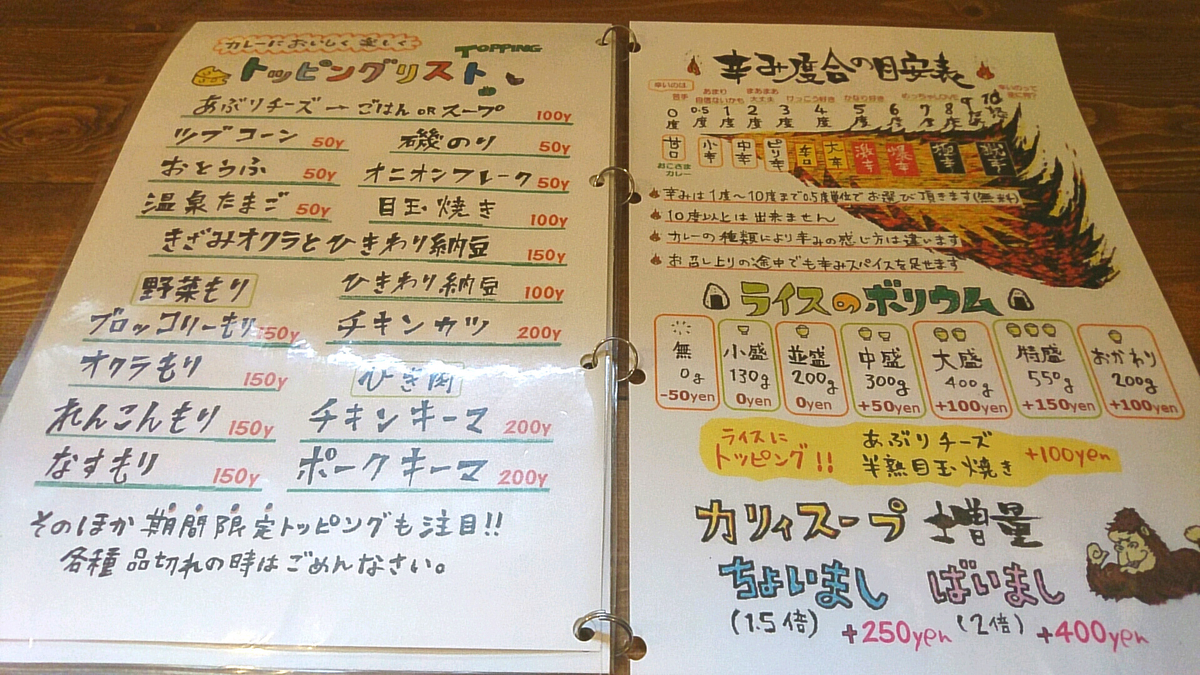 カレーにおいしく楽しく
TOPPING
トッピングリスト
あぶりチーズ → ごはん OR スープ 100y
ツブコーン 50y 磯のり 50y
おとうふ 50y オニオンフレーク 50y
温泉たまご 50y 目玉焼き 100y
きざみオクラとひきわり納豆 150y
野菜もり ひきわり納豆 100y
ブロッコリーもり 150y チキンカツ 200y
オクラもり 150y ひき肉
れんこんもり 150y チキンキーマ 200y
なすもり 150y ポークキーマ 200y
そのほか期間限定トッピングも注目!!
各種品切れの時はごめんなさい。
辛み度合の目安表
辛いのは苦手 あまり自信ないかも まあまあ大丈夫 けっこう好き かなり好き めっちゃLOVE
0度 0.5度 1度 2度 3度 4度 5度 6度 7度 8度 9度 10度
甘口 小辛 中辛 ピリ辛 辛口 大辛 激辛 爆辛
おこさまカレー
辛みは1度〜10度まで0.5度単位でお選び頂きます(無料)
10度以上は出来ません
カレーの種類により辛みの感じ方は違います
お召し上りの途中でも辛みスパイスを足せます
ライスのボリウム
無 小盛 並盛 中盛 大盛 特盛 おかわり
0g 130g 200g 300g 400g 550g 200g
-50yen 0yen 0yen +50yen +100yen +150yen +100yen
ライスに あぶりチーズ
トッピング!! 半熟目玉焼き +100yen
カリィスープ 増量
ちょいまし ばいまし
(1.5倍) +250yen (2倍) +400yen